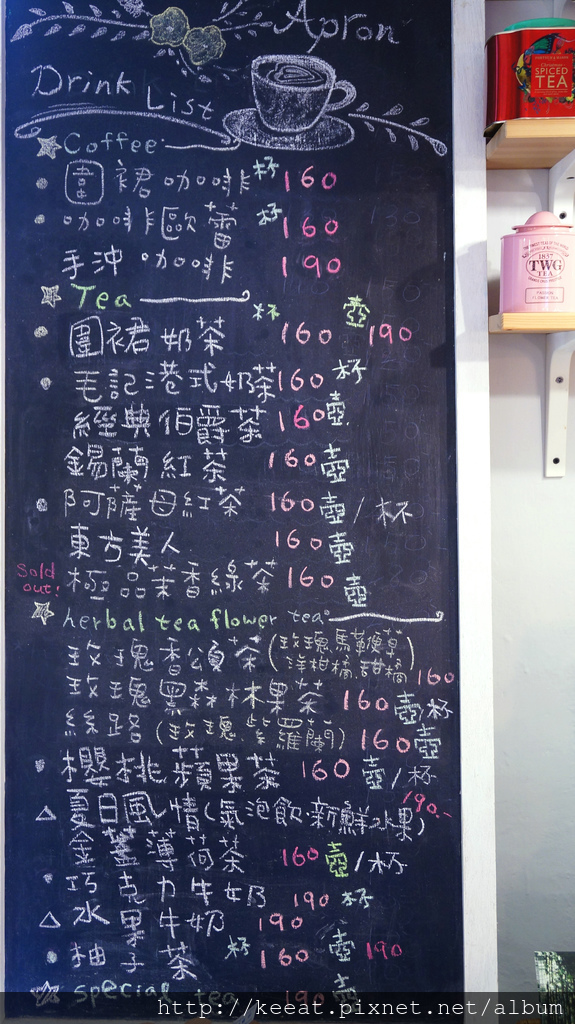 Apron
Drink List
Coffee
圍裙咖啡 杯 160
咖啡歐蕾 杯 160
手沖咖啡 190
Tea
圍裙奶茶 杯 160 壺 190
毛記港式奶茶 160 杯
經典伯爵茶 160 壺
錫蘭紅茶 160 壺
阿薩母紅茶 160 壺/杯
東方美人 160 壺
Sold out! 極品茉香綠茶 160 壺
herbal tea flower tea
玫瑰香頌茶(玫瑰.馬鞭草 洋柑橘.甜橘) 160
玫瑰黑森林果茶 160 壺/杯
絲路(玫瑰.紫羅蘭) 160 壺
櫻桃蘋果茶 160 壺/杯
夏日風情(氣泡飲.新鮮水果) 190.-
金薑薄荷茶 160 壺/杯
巧克力牛奶 190 杯
水果牛奶 190
柚子茶 杯 160 壺 190
special tea 190 壺
SPICED TEA
1837
TWG
TEA
http://keeat.pixnet.net/album